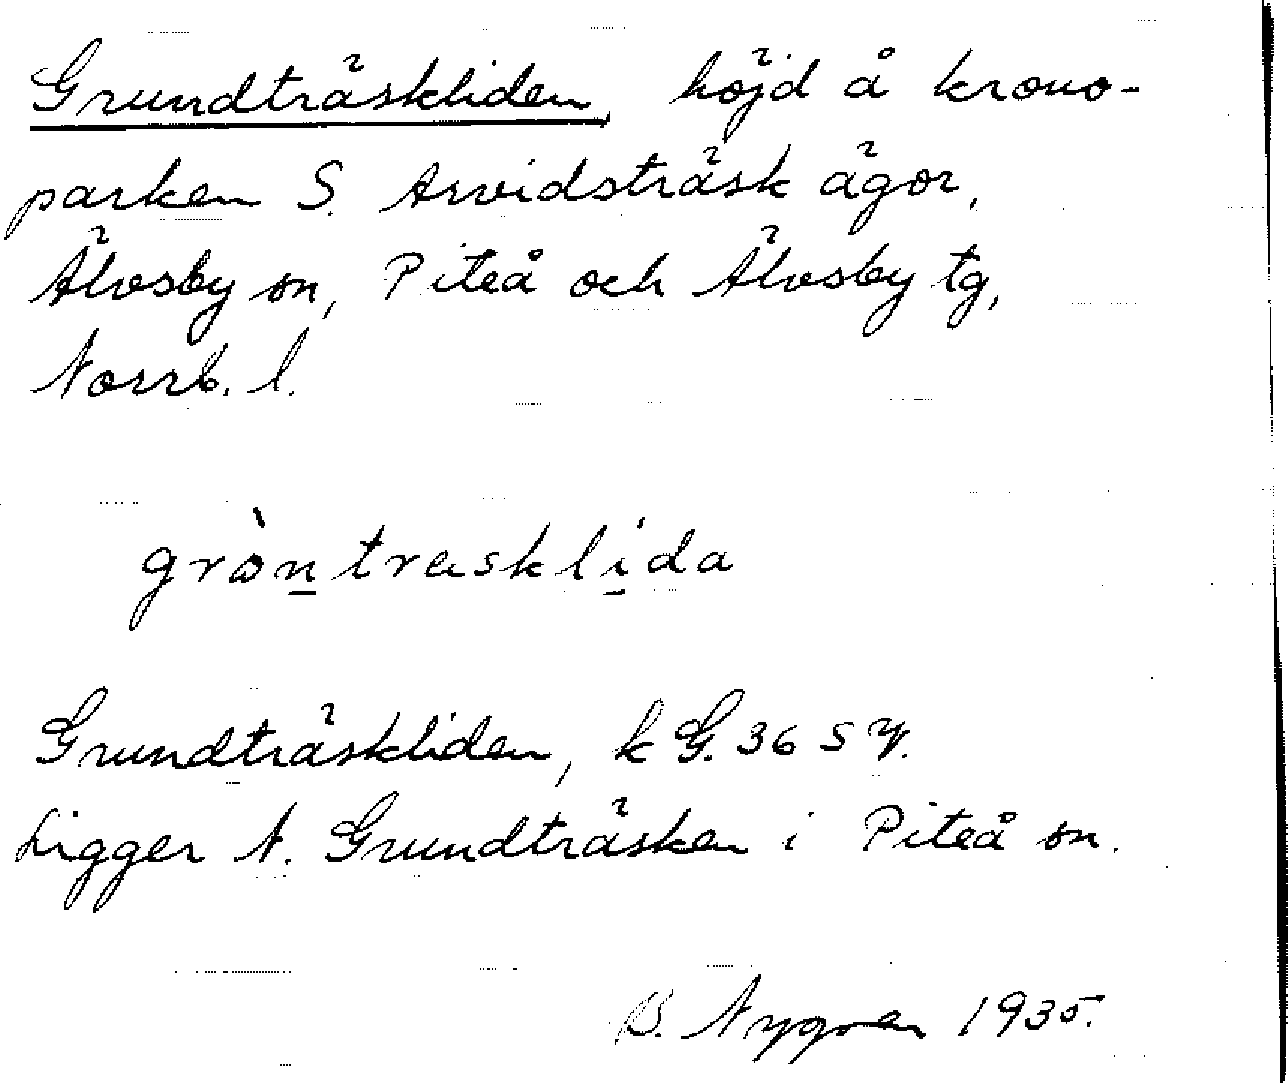 Grundträskliden, höjd å krono-
parken S. Arvidsträsk ägor,
Älvsby sn, Piteå och Älvsby tg,
Norrb. l.
gròntrasklida
Grundträskliden, k G. 36 S V.
Ligger N. Grundträsken i Piteå sn.
B. Nygren 1935.